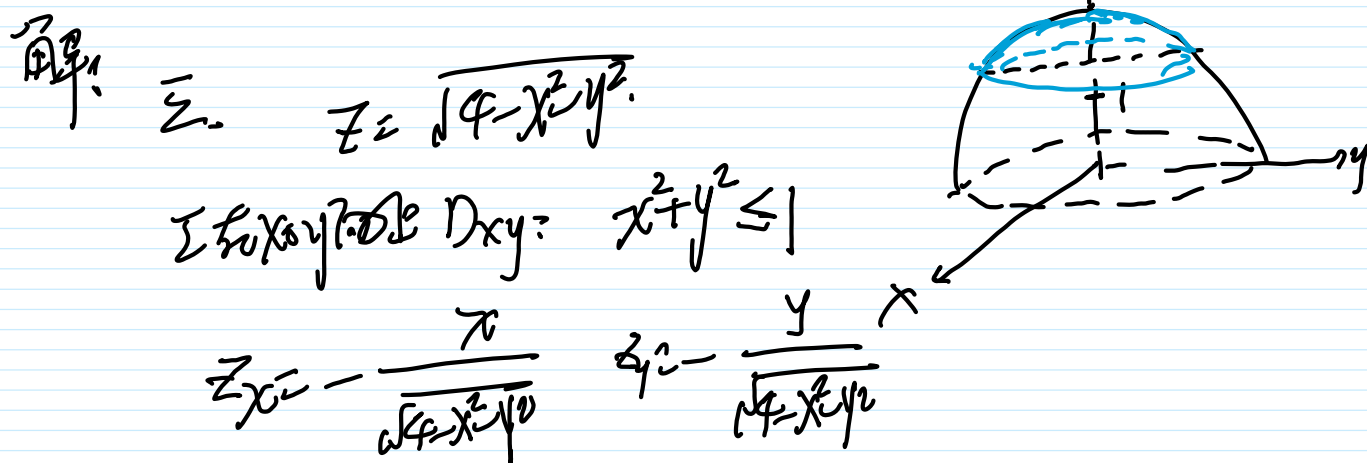 解:
Σ. z = √(4-x²-y²).
Σ在xoy Dxy: x²+y² ≤ 1
z_x = - x/√(4-x²-y²) z_y = - y/√(4-x²-y²)
1
y
x